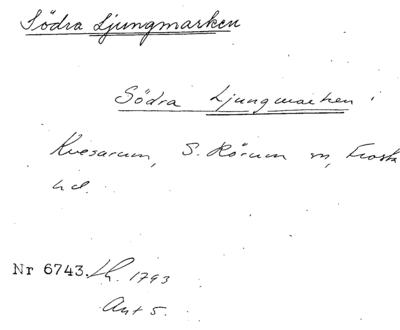 Södra Ljungmarken
Södra Ljungmarken i
Kvesarum, S. Rörum sn, Frosta
hd.
Nr 6743. Lh. 1793
Akt 5.